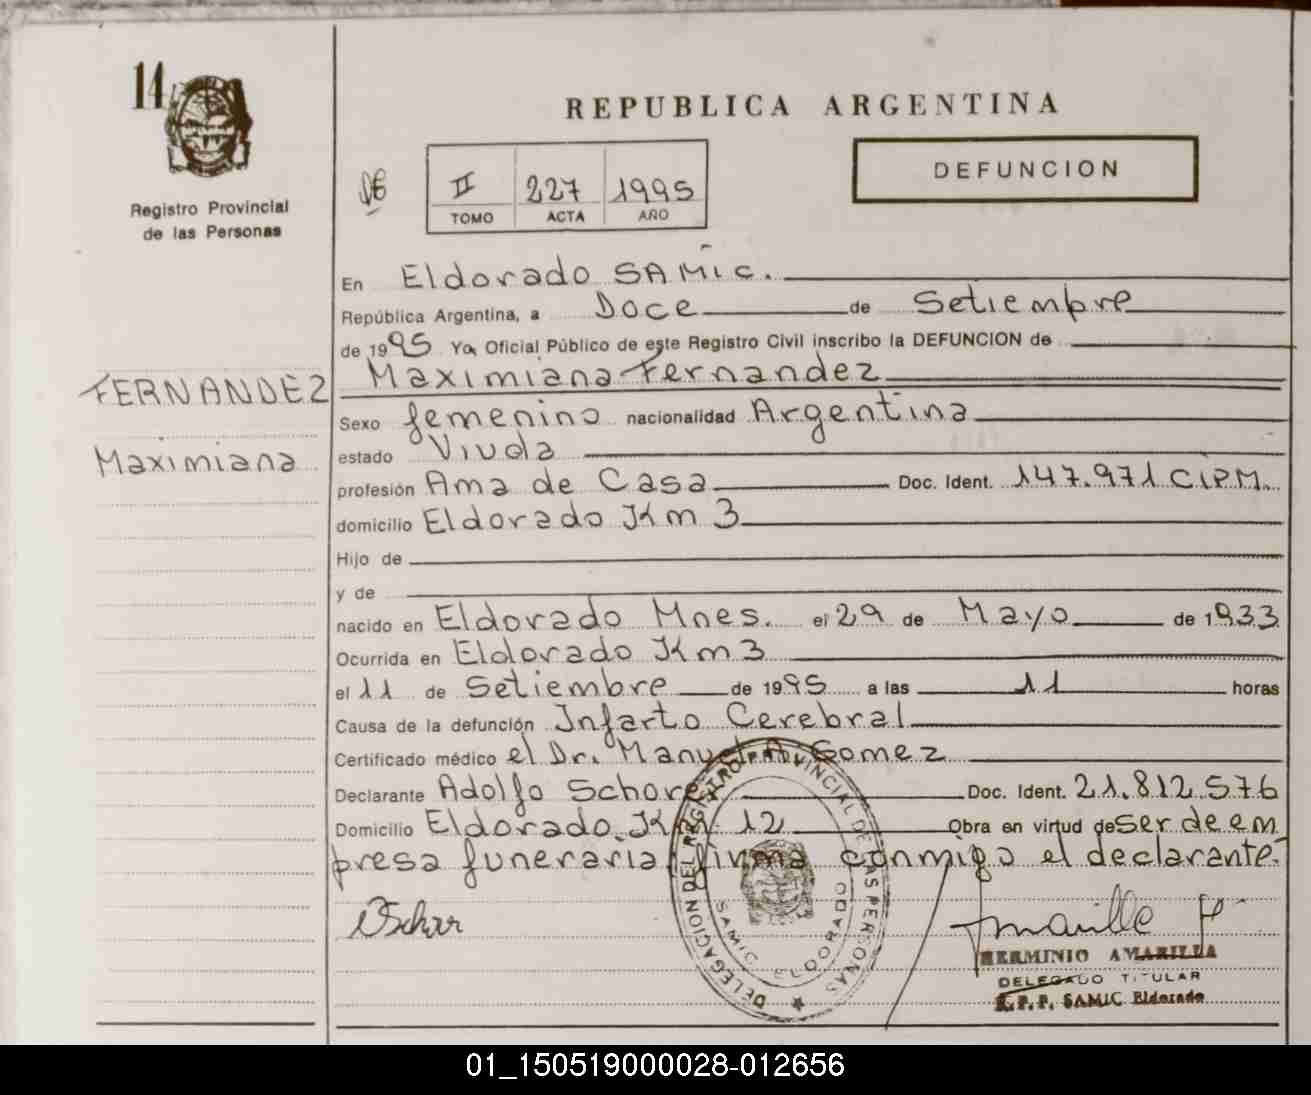 14
Registro Provincial
de las Personas
REPUBLICA ARGENTINA
DEFUNCION
II 227 1995
TOMO ACTA AÑO
En Eldorado SAMic.
República Argentina, a Doce de Setiembre
de 1995 Yo, Oficial Público de este Registro Civil inscribo la DEFUNCION de
Maximiana Fernandez
FERNANDEZ
Maximiana
Sexo femenino nacionalidad Argentina
estado Viuda
profesión Ama de Casa Doc. Ident. 147.971 CIPM.
domicilio Eldorado Km 3
Hijo de
y de
nacido en Eldorado Mnes. el 29 de Mayo de 1933
Ocurrida en Eldorado Km 3
el 11 de Setiembre de 1995 a las 11 horas
Causa de la defunción Infarto Cerebral
Certificado médico el Dr. Manuel A. Gomez
Declarante Adolfo Schore Doc. Ident. 21.812.576
Domicilio Eldorado Km 12 Obra en virtud de ser de em
presa funeraria firma conmigo el declarante.
DELEGACION DEL REGISTRO PROVINCIAL DE LAS PERSONAS
SAMIC ELDORADO
HERMINIO AMARILLA
DELEGADO TITULAR
R.P.P. SAMIC Eldorado
01_150519000028-012656